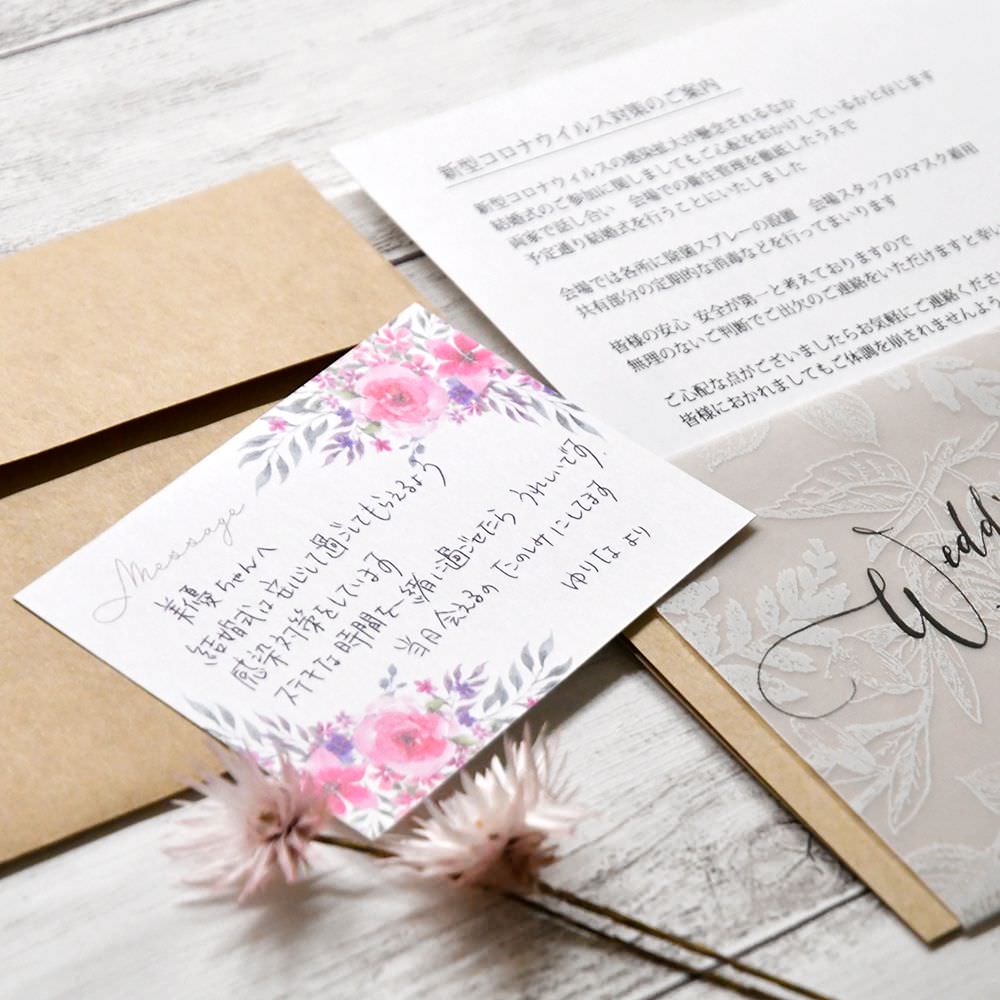 新型コロナウイルス対策のご案内
新型コロナウイルスの感染拡大が懸念されるなか
結婚式のご参加に関しましてもご心配をおかけしているかと存じます
両家で話し合い 会場での衛生管理を徹底したうえで
予定通り結婚式を行うことにいたしました
会場では各所に除菌スプレーの設置 会場スタッフのマスク着用
共有部分の定期的な消毒などを行ってまいります
皆様の安心 安全が第一と考えておりますので
無理のないご判断でご出欠のご連絡をいただけますと幸い
ご心配な点がございましたらお気軽にご連絡くださ
皆様におかれましてもご体調を崩されませんよう
Message
美優ちゃんへ
結婚式は安心して過ごしてもらえるよう
感染対策をしています
ステキな時間を一緒に過ごせたら うれしいです。
当日 会えるの たのしみにしてます
ゆりなより
Wedd